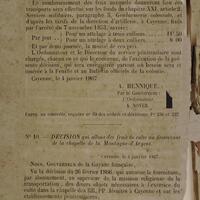 Le remboursement des frais auxquels donneront lieu ces
transports sera effectué sur les fonds du chapitre XXI, article 2,
Services militaires, paragraphe 3, Gendarmerie coloniale, et
d'après les tarifs de la direction d'artillerie, à Cayenne, fixés
par l'arrêté du 7 novembre 1853, savoir :
Par jour. — Pour un attelage à trois colliers
— Pour un attelage à deux colliers
Et par demi-journée, la moitié de ces prix.
L'Ordonnateur et le Directeur du service pénitentiaire sont
chargés, chacun en ce qui le concerne, de l'exécution de la présente
décision, qui sera enregistrée partout où besoin sera et
insérée à la Feuille et au Bulletin officiels de la colonie.
Cayenne, le 4 janvier 1867
A. HENNIQUE.
Par le Gouverneur :
L'Ordonnateur
Nº 10 — DÉCISION qui alloue des frais de culte au desservant
de la chapelle de la Montagne-d'Argent.
Cayenne, le 4 janvier 1867.
Nous, Gouverneur de la Guyane française,
Vu la décision du 26 février 1866, qui autorise à fournir,
par abonnement, au supérieur de la mission religieuse de la
transportation, des divers objets nécessaires à l'exercice du
culte dans la chapelle des RR. PP. Jésuites à Cayenne et sur les
établissements pénitentiaires ;